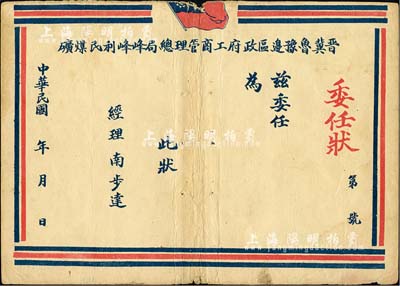 晉冀魯豫邊區政府工商管理總局峰峰利民煤礦
委任狀
第 號
茲委任
為
此狀
經理 南步達
中華民國 年 月 日
上海陽明拍賣
上海陽明拍賣
上海陽明拍賣